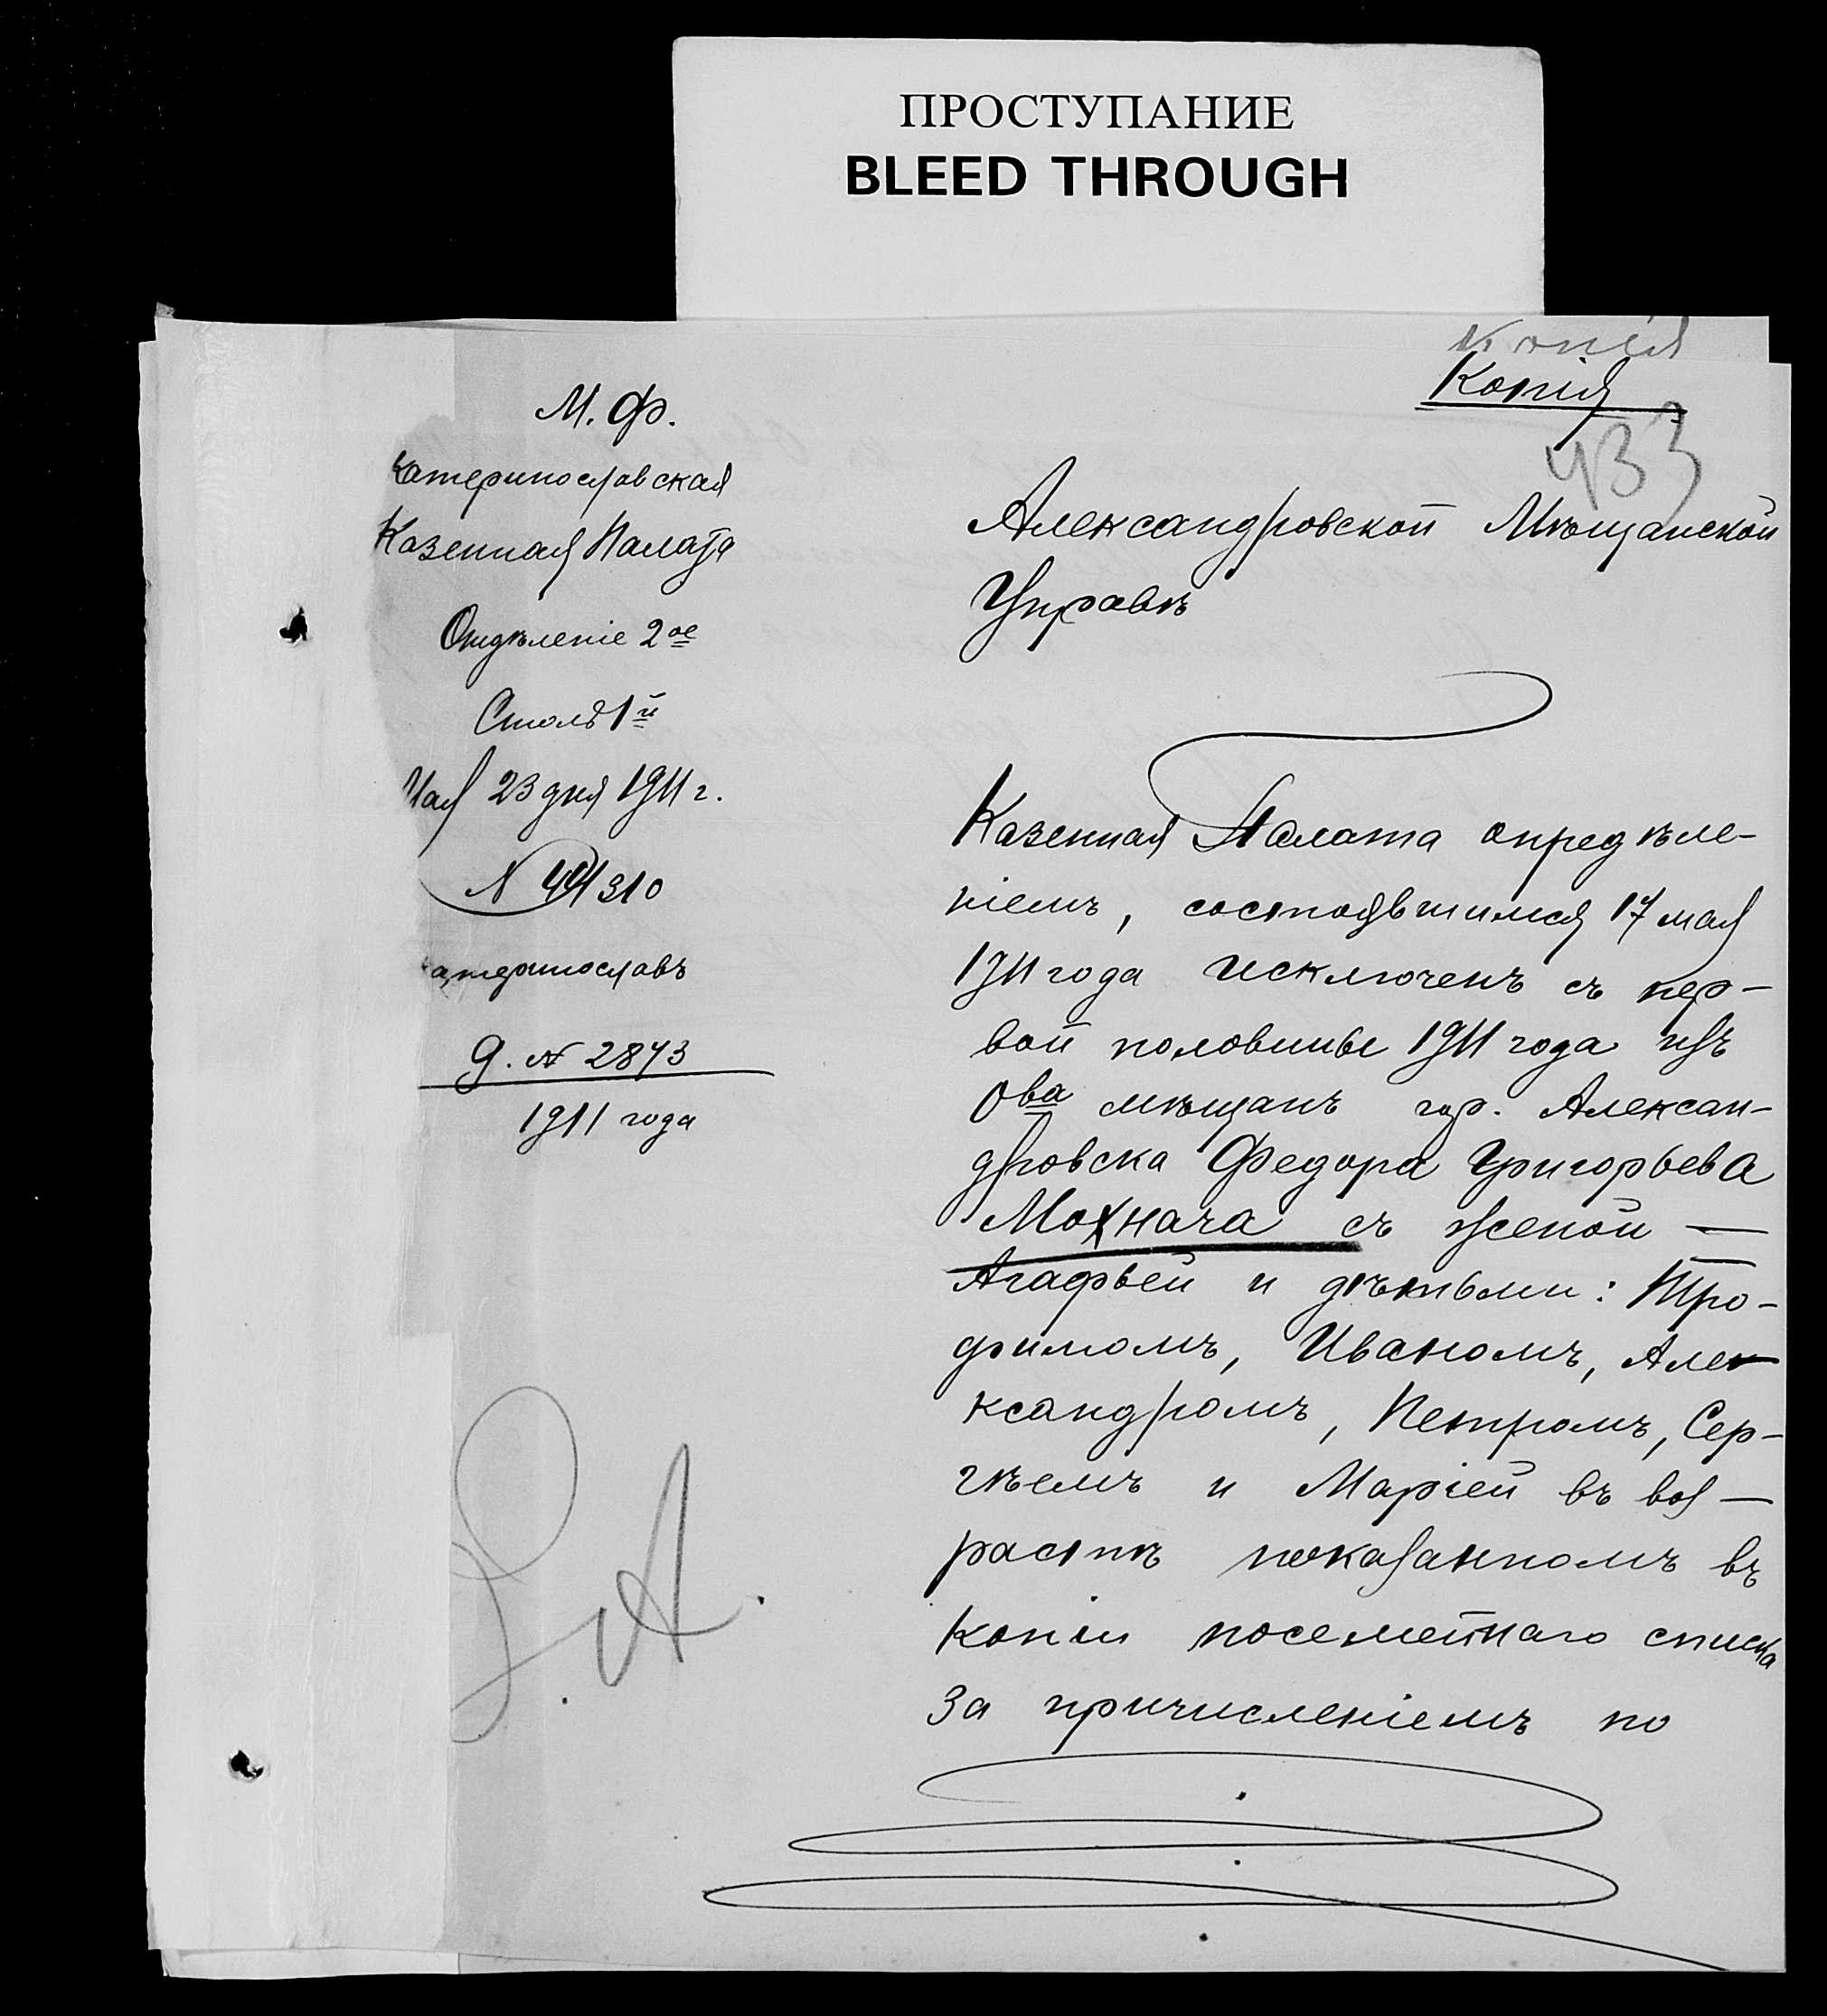 ПРОСТУПАНИЕ
BLEED THROUGH
Копія
Копія
433
М. Ф.
катеринославская
Казенная Палата
Отдѣленіе 2ое
Столъ 1й
Мая 23 дня 1911 г.
N 44310
атеринославъ
Д. № 2873
1911 года
Александровской Мѣщанской
Управѣ
Казенная Палата опредѣле-
ніемъ, состоявшимся 17 мая
1911 года исключенъ съ пер-
вой половины 1911 года изъ
Ова мѣщанъ гор. Алексан-
дровска Федора Григорьева
Мохнача съ женой —
Агафьей и дѣтьми: Тро-
фимомъ, Иваномъ, Але-
ксандромъ, Петромъ, Сер-
гѣемъ и Маріей въ воз-
растѣ показанномъ въ
копіи посемейнаго списка
за причисленіемъ по